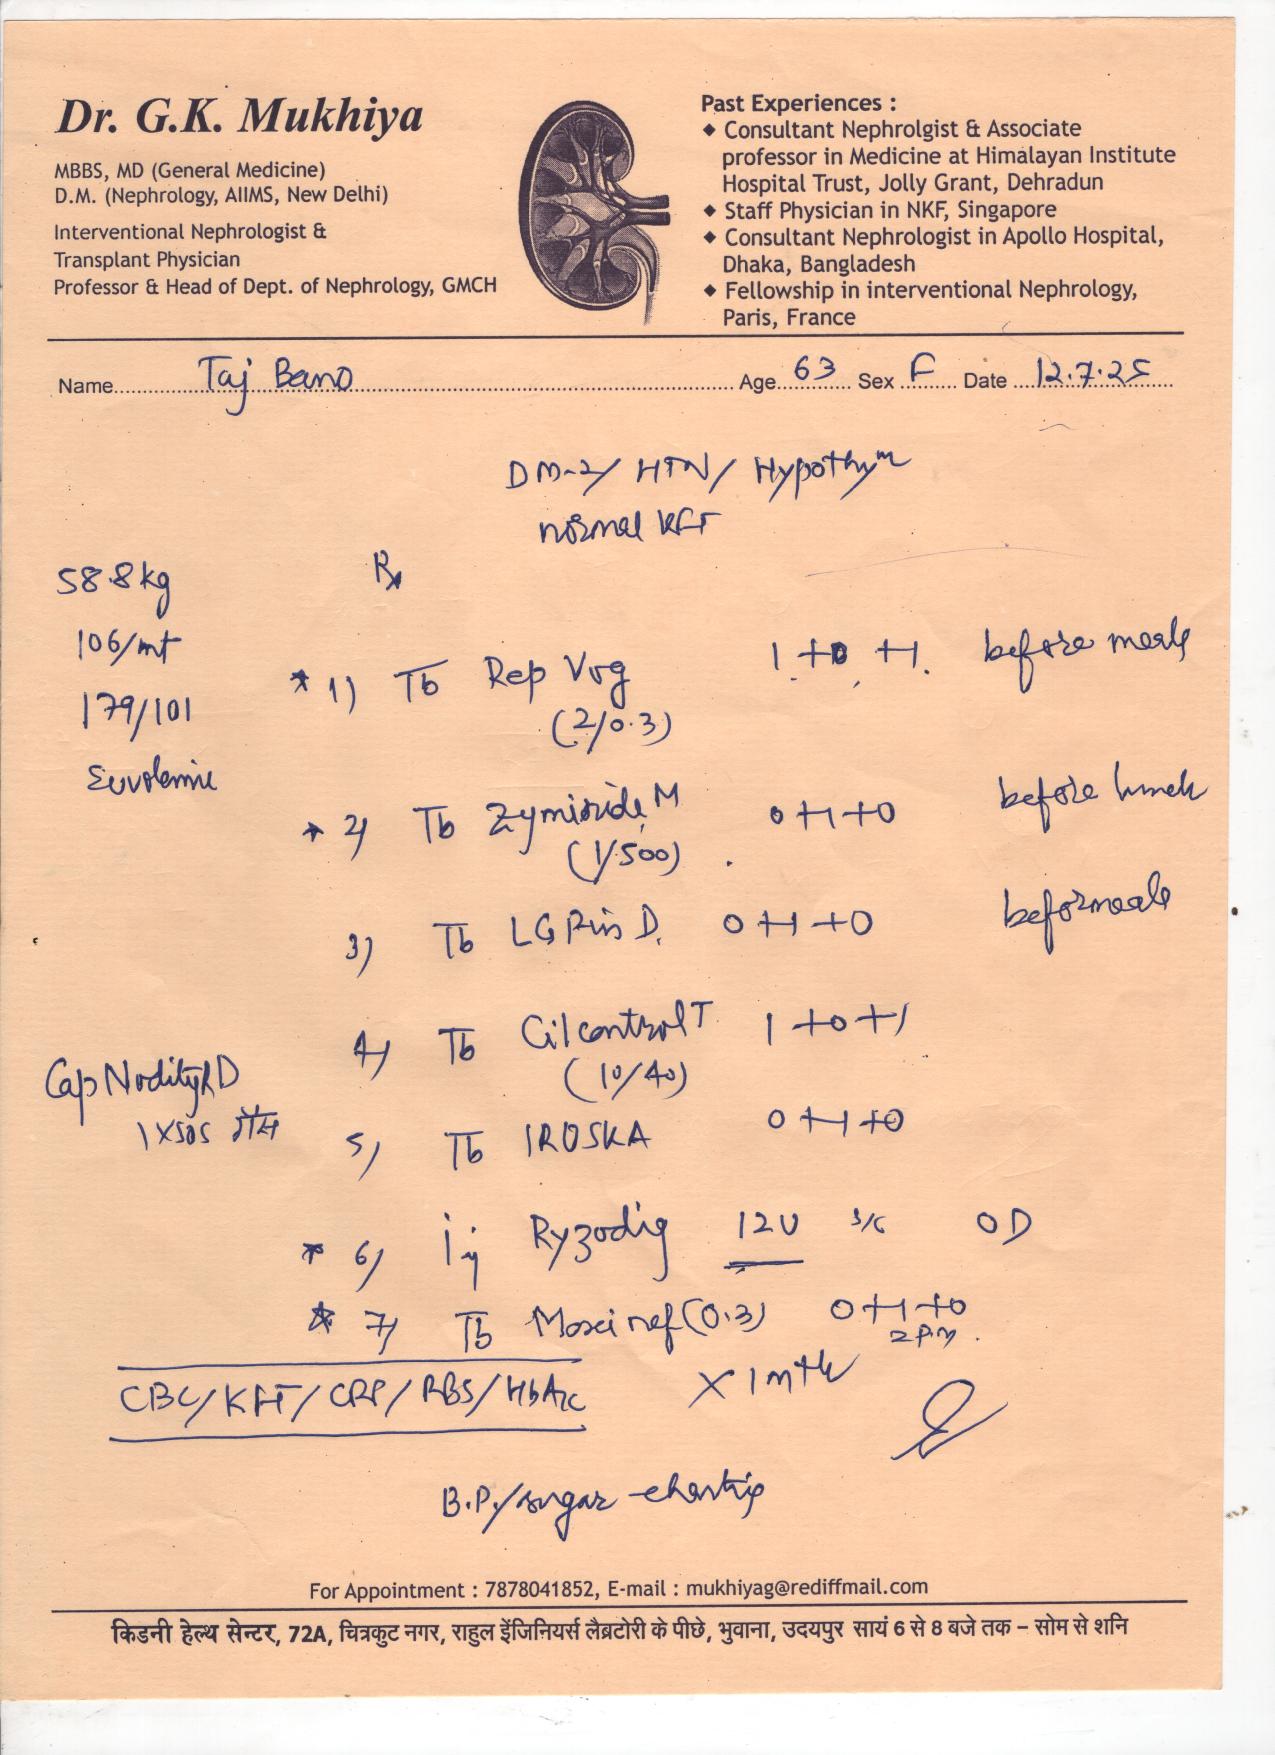 Dr. G.K. Mukhiya
MBBS, MD (General Medicine)
D.M. (Nephrology, AIIMS, New Delhi)
Interventional Nephrologist &
Transplant Physician
Professor & Head of Dept. of Nephrology, GMCH
Past Experiences :
◆ Consultant Nephrolgist & Associate
professor in Medicine at Himalayan Institute
Hospital Trust, Jolly Grant, Dehradun
◆ Staff Physician in NKF, Singapore
◆ Consultant Nephrologist in Apollo Hospital,
Dhaka, Bangladesh
◆ Fellowship in interventional Nephrology,
Paris, France
Name Taj Bano Age 63 Sex F Date 12.7.25
DM-2/ HTN/ Hypothym
normal KFT
58.8kg
106/mt
179/101
Euvolemic
Rx
* 1) Tb Rep Vog 1+0+1 before meals
(2/0.3)
* 2) Tb M 0+1+0 before lunch
(1/500)
3) Tb LG D 0+1+0 before meals
4) Tb Cilcontrol T 1+0+1
(10/40)
Cap D
1 X SOS
5) Tb IROSKA 0+1+0
* 6) Inj Ryzodig 12U s/c OD
* 7) Tb (0.3) 0+1+0
2 PM
X 1 mth
CBC/KFT/CRP/RBS/HbA1c
B.P./sugar charting
For Appointment : 7878041852, E-mail : mukhiyag@rediffmail.com
किडनी हेल्थ सेन्टर, 72A, चित्रकुट नगर, राहुल इंजिनियर्स लैब्रटोरी के पीछे, भुवाना, उदयपुर सायं 6 से 8 बजे तक – सोम से शनि